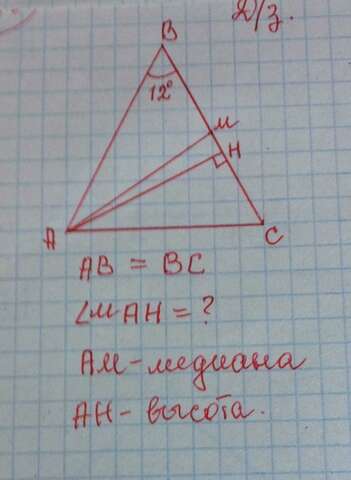 Д/з.
B
12°
M
H
A
C
AB = BC
∠MAH = ?
AM - медиана
AH - высота.